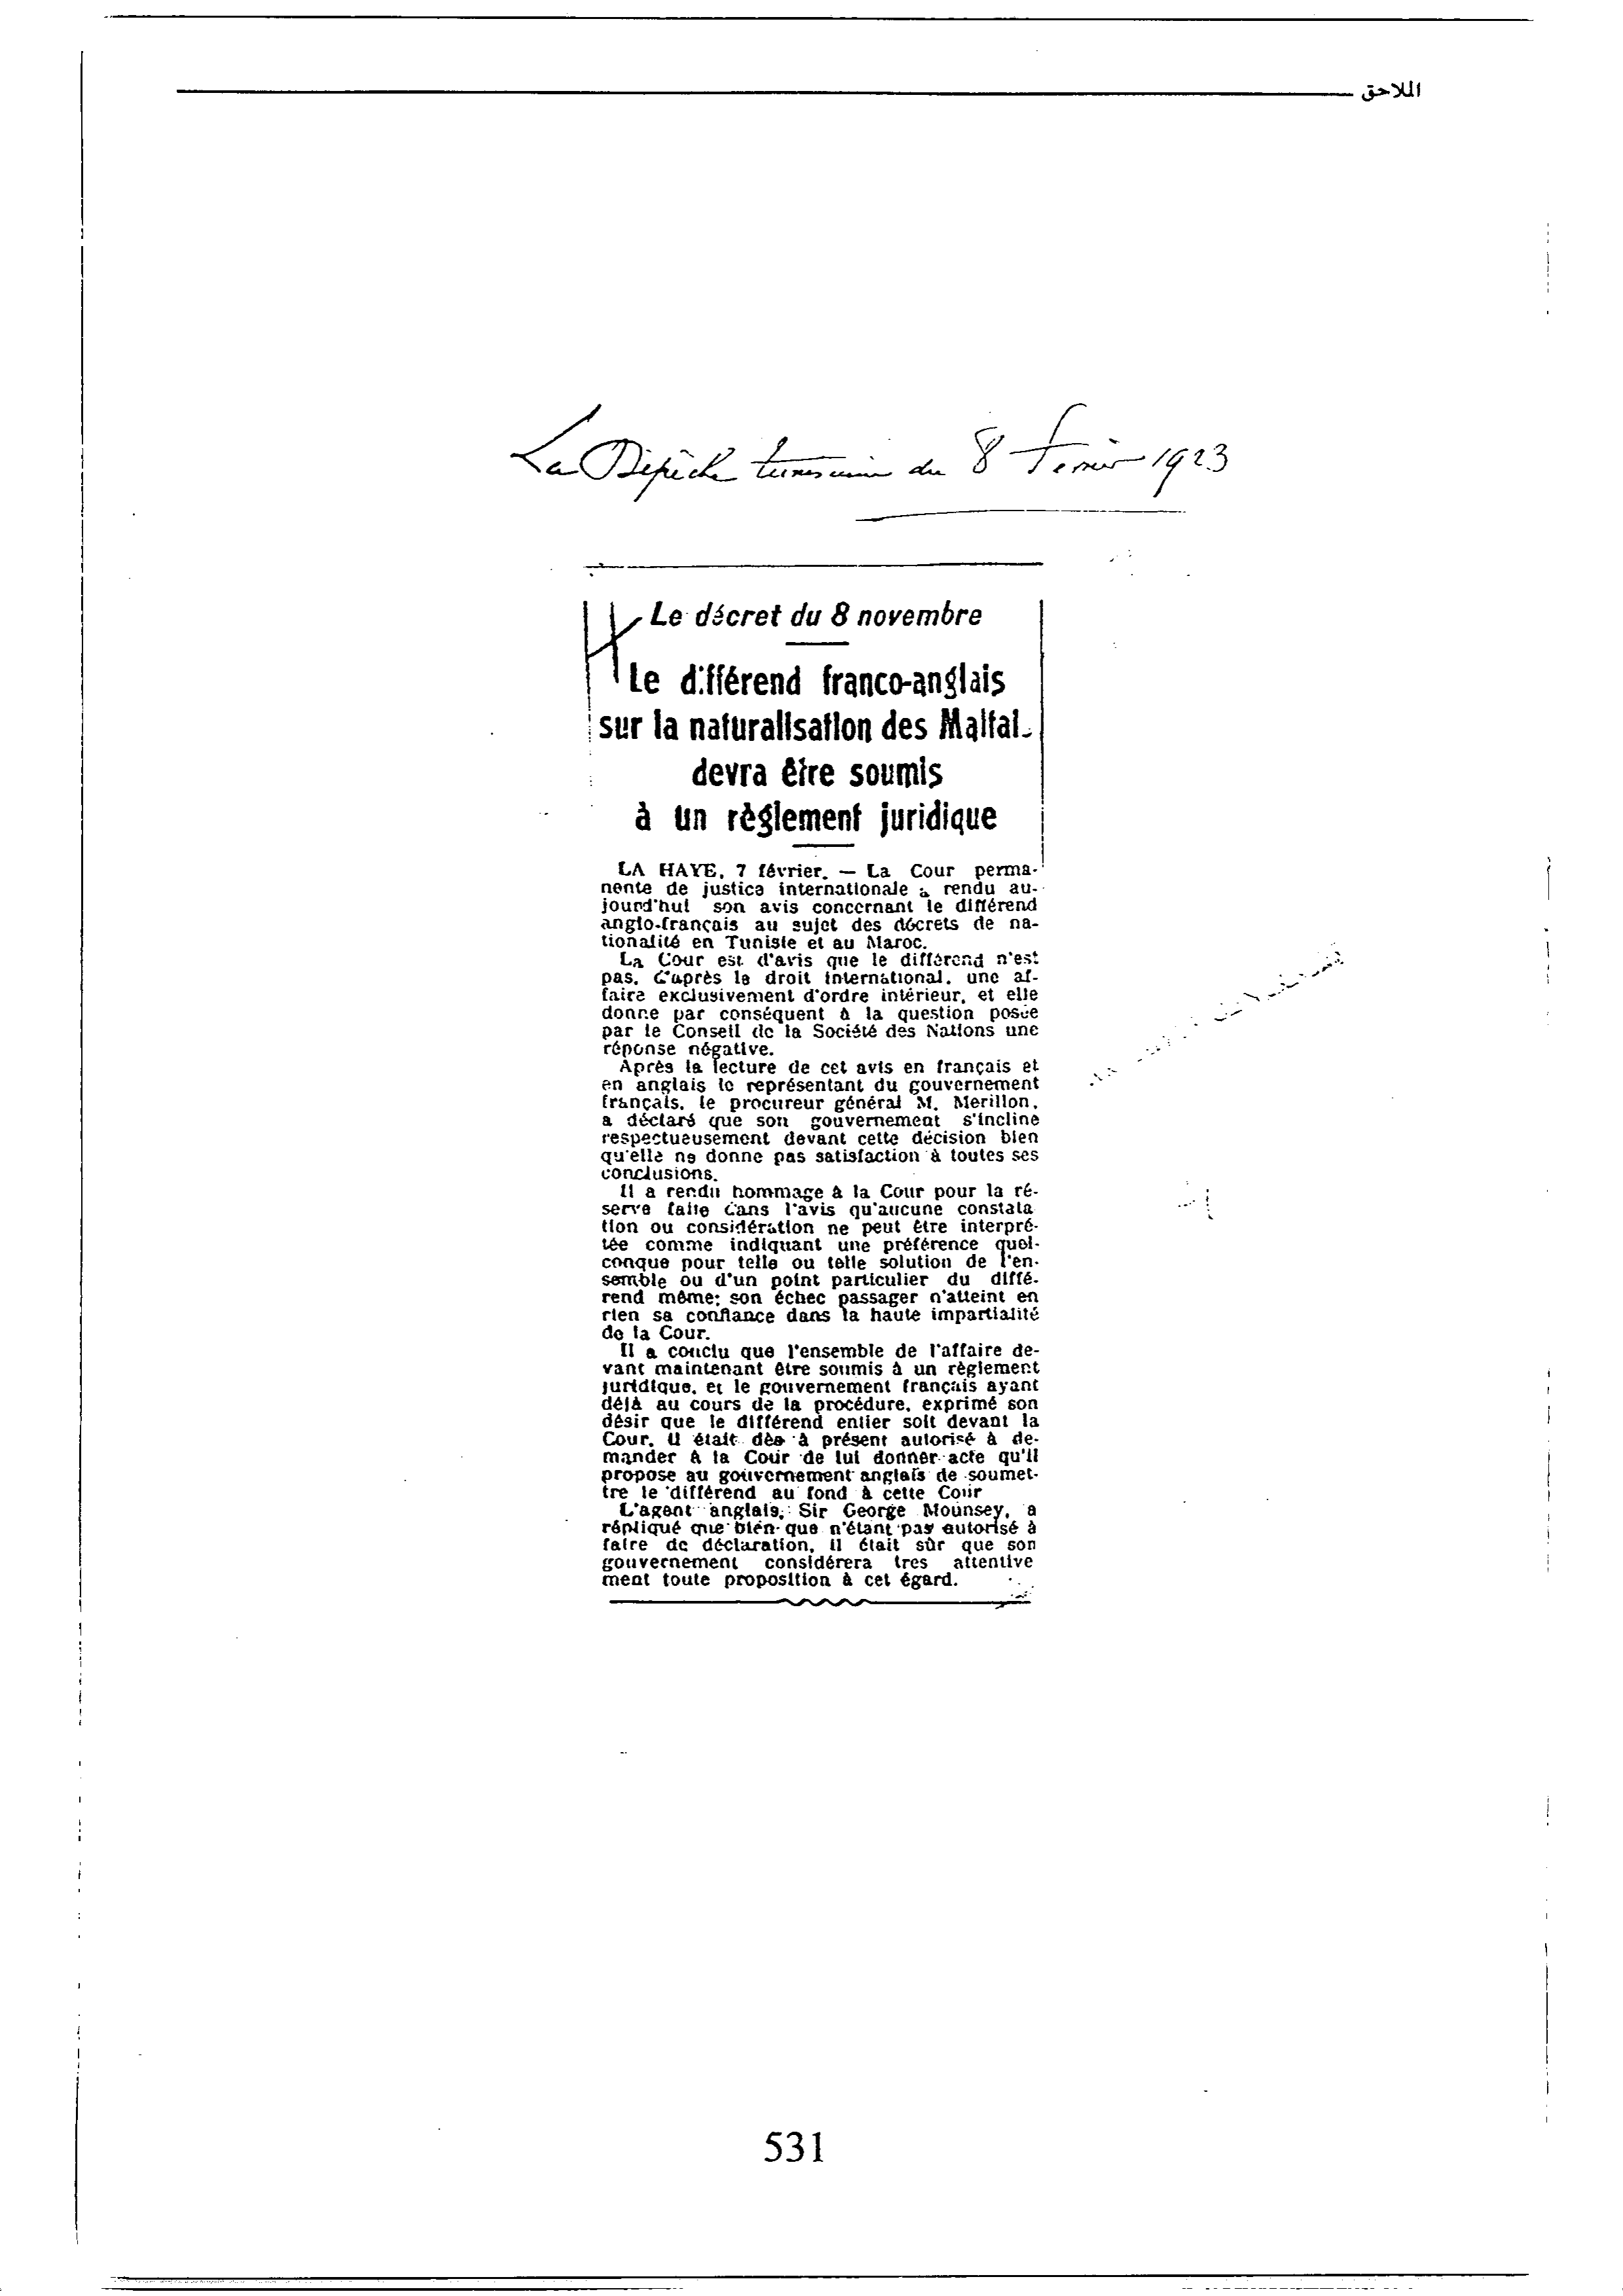 الملاحق
La Dépêche tunisienne du 8 Fevrier 1923
Le décret du 8 novembre
Le différend franco-anglais
sur la naturalisation des Maltai-
devra être soumis
à un règlement juridique
LA HAYE, 7 février. — La Cour perma-
nente de justice internationale a rendu au-
jourd'hui son avis concernant le différend
anglo-français au sujet des décrets de na-
tionalité en Tunisie et au Maroc.
La Cour est d'avis que le différend n'est
pas, d'après le droit international, une af-
faire exclusivement d'ordre intérieur, et elle
donne par conséquent à la question posée
par le Conseil de la Société des Nations une
réponse négative.
Après la lecture de cet avis en français et
en anglais le représentant du gouvernement
français, le procureur général M. Merillon,
a déclaré que son gouvernement s'incline
respectueusement devant cette décision bien
qu'elle ne donne pas satisfaction à toutes ses
conclusions.
Il a rendu hommage à la Cour pour la ré-
serve faite dans l'avis qu'aucune constata
tion ou considération ne peut être interpré-
tée comme indiquant une préférence quel-
conque pour telle ou telle solution de l'en-
semble ou d'un point particulier du diffé-
rend même; son échec passager n'atteint en
rien sa confiance dans la haute impartialité
de la Cour.
Il a conclu que l'ensemble de l'affaire de-
vant maintenant être soumis à un règlement
juridique, et le gouvernement français ayant
déjà au cours de la procédure, exprimé son
désir que le différend entier soit devant la
Cour, il était dès à présent autorisé à de-
mander à la Cour de lui donner acte qu'il
propose au gouvernement anglais de soumet-
tre le différend au fond à cette Cour
L'agent anglais, Sir George Mounsey, a
répliqué que bien que n'étant pas autorisé à
faire de déclaration, il était sûr que son
gouvernement considérera tres attentive
ment toute proposition à cet égard.
531